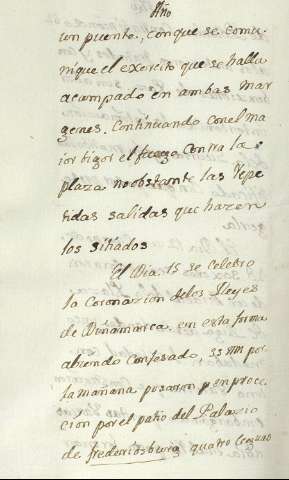 Año
un puente, con que se comu
nique el exercito que se halla
acampado en ambas mar
genes. Continuando con el ma
ior rigor el fuego contra la
plaza no obstante las Repe
tidas salidas que hazen
los sitiados
El Dia 15 se celebro
la Coronazion de los Reyes
de Dinamarca, en esta forma
abiendo Confesado, SS MM por
la mañana pasaron en proce
cion por el patio del Palazio
de frederiosburg quatro leguas